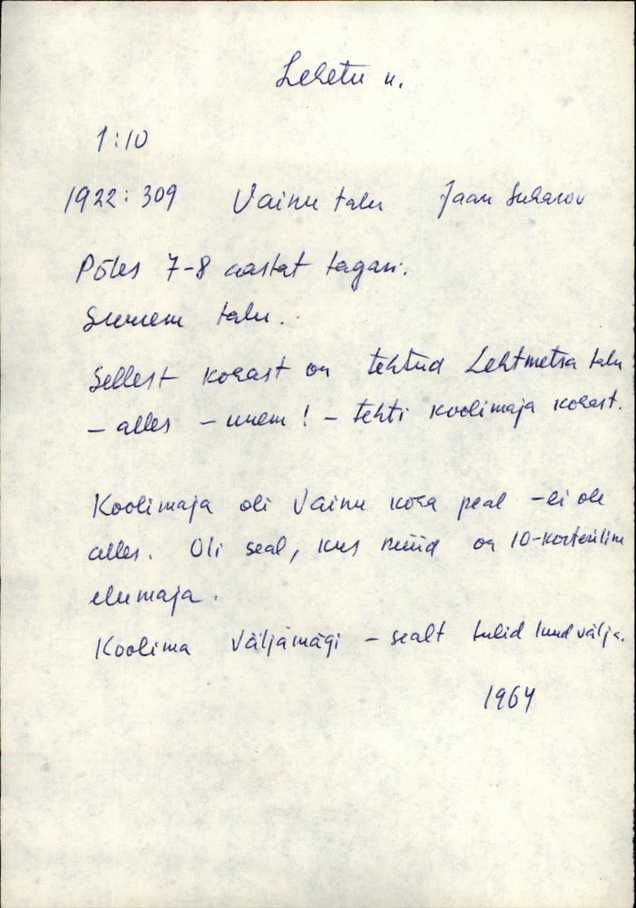 Lehetu k.
1:10
1922: 309 Vainu talu Jaan Suharov
Põles 7-8 aastat tagasi.
Suurem talu.
Sellest kohast on tehtud Lehtmetsa talu
- alles - uuem! - tehti koolimaja kohast.
Koolimaja oli Vainu koha peal - ei ole
alles. Oli seal, kus nüüd on 10-korteriline
elumaja.
Koolima Väljamägi - sealt tulid luud välja.
1964